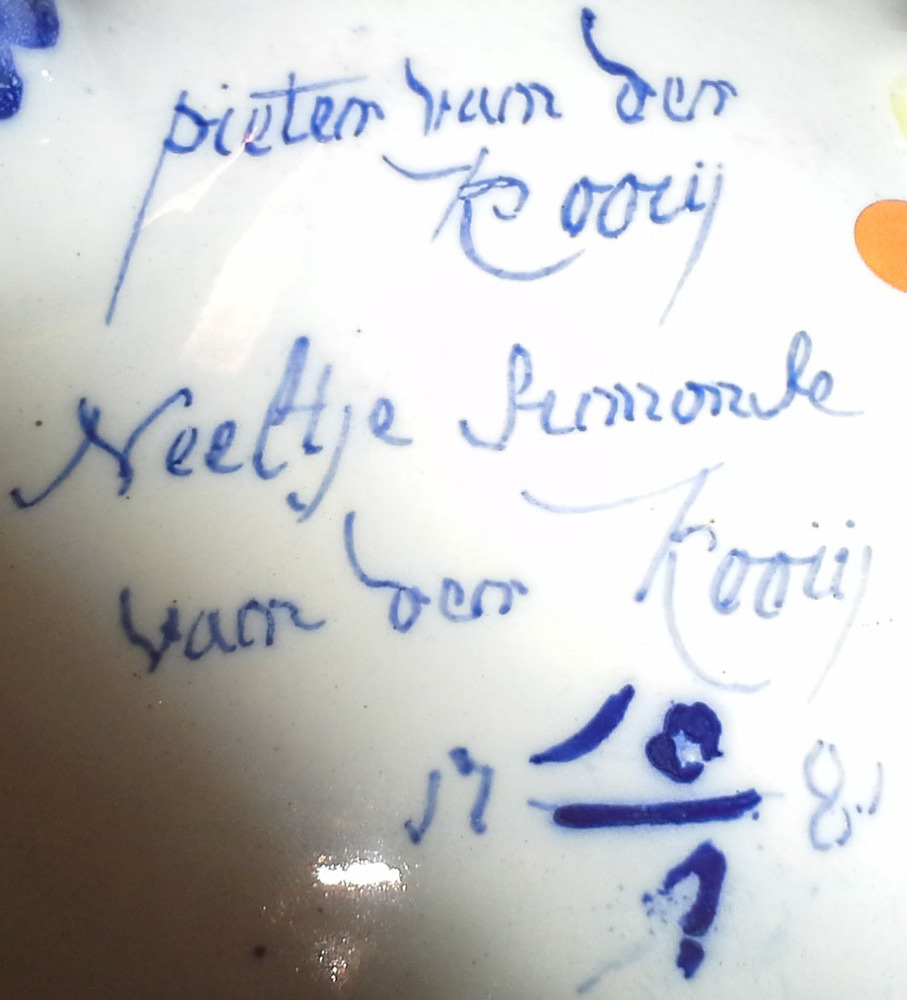 pieter van der
Kooij
Neeltje Simonse
van der Kooij